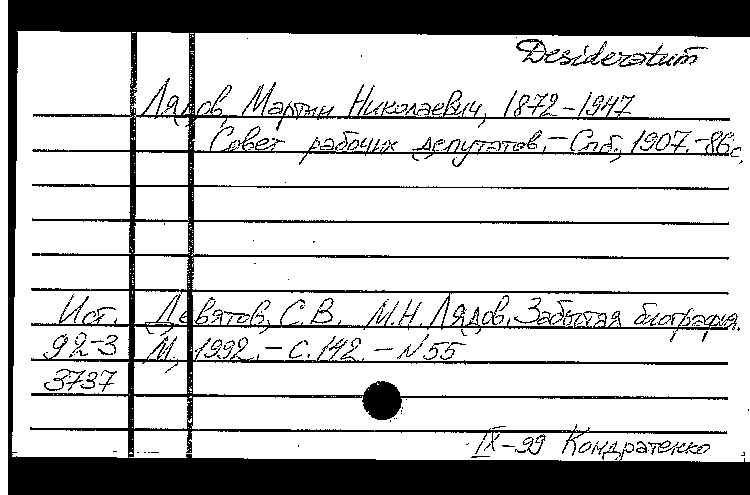 Desideratum
Лядов, Мартин Николаевич, 1872-1947
Совет рабочих депутатов.-Спб., 1907.-86с.
Ист. Девятов, С.В. М.Н. Лядов. Забытая биография.
92-3 М., 1992.-С.142.-N55
3737
IX-99 Кондратенко